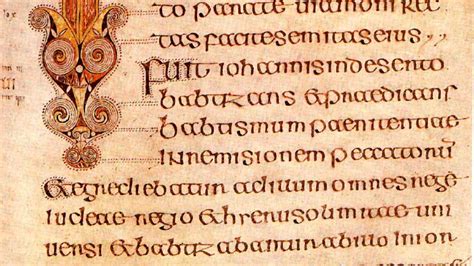 to parate uiam dni rec
tas facite semitas eius
Fuit iohannis in deserto
babtizans & praedicans
babtismum paenitentiae
in remisionem peccatorū
& egrediebatur ad illum omnes rege
iudeae regio & hierusolimitae uni
uersi & babtizabantur ab illo in ior